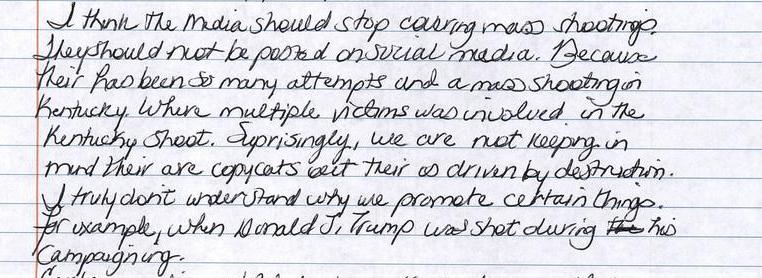 I think the media should stop covering mass shootings.
They should not be posted on social media. Because
their has been so many attempts and a mass shooting in
Kentucky. Where multiple victims was involved in the
Kentucky shoot. Suprisingly, we are not keeping in
mind their are copycats out their as driven by destruction.
I truly don't understand why we promote certain things.
For example, when Donald J. Trump was shot during the his
Campaigning.